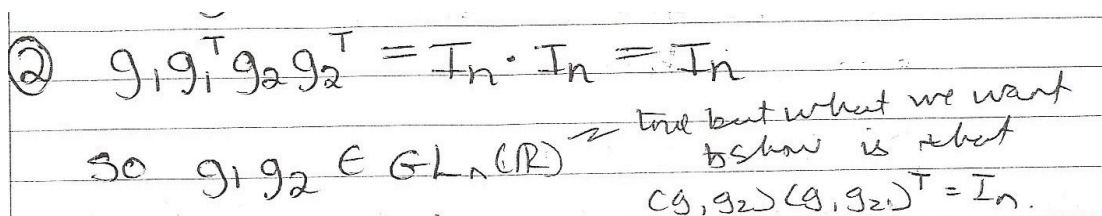 ② g₁g₁ᵀg₂g₂ᵀ = Iₙ · Iₙ = Iₙ
so g₁g₂ ∈ GLₙ(ℝ)
~ true but what we want
to show is that
(g₁g₂)(g₁g₂)ᵀ = Iₙ.